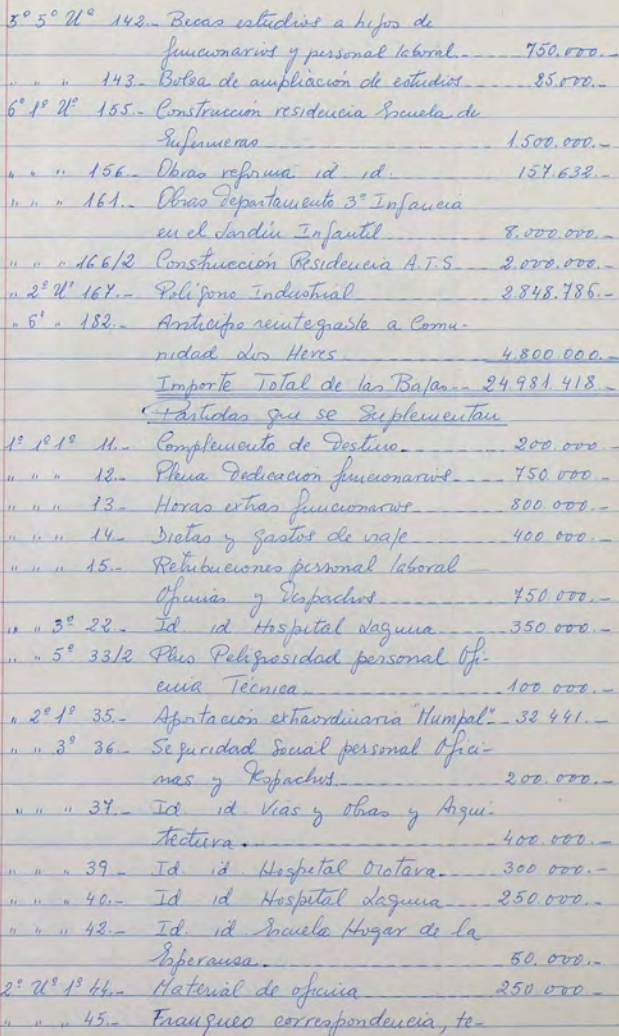 5º 5º Uº 142.- Becas estudios a hijos de
funcionarios y personal laboral 750.000.-
" " " 143.- Bolsa de ampliación de estudios 25.000.-
6º 1º Uº 155.- Construcción residencia Escuela de
Enfermeras 1.500.000.-
" " " 156.- Obras reforma id. id. 157.632.-
" " " 161.- Obras departamento 3ª Infancia
en el Jardín Infantil 8.000.000.-
" " " 166/2 Construcción Residencia A.T.S. 2.000.000.-
" 2º Uº 167.- Polígono Industrial 2.848.786.-
" 6º " 182.- Anticipo reintegrable a Comu-
nidad Los Heres 4.800.000.-
Importe Total de las Bajas.- 24.981.418.-
Partidas que se Suplementan
1º 1º 1º 11.- Complemento de Destino 200.000.-
" " " 12.- Plena Dedicación funcionarios 750.000.-
" " " 13.- Horas extras funcionarios 800.000.-
" " " 14.- Dietas y gastos de viaje 400.000.-
" " " 15.- Retribuciones personal laboral
Oficinas y Despachos 750.000.-
" " 3º 22.- Id. id Hospital Laguna 350.000.-
" " 5º 33/2 Plus Peligrosidad personal Ofi-
cina Técnica 100.000.-
" 2º 1º 35.- Aportación extraordinaria "Munpal" 32.441.-
" " 3º 36.- Seguridad Social personal Ofici-
nas y Despachos 200.000.-
" " " 37.- Id. id Vías y Obras y Arqui-
tectura. 400.000.-
" " " 39.- Id. id. Hospital Orotava 300.000.-
" " " 40.- Id id Hospital Laguna 250.000.-
" " " 42.- Id. id Escuela Hogar de la
Esperanza. 50.000.-
2º Uº 1º 44.- Material de oficina 250.000.-
" " " 45.- Franqueo correspondencia, te-